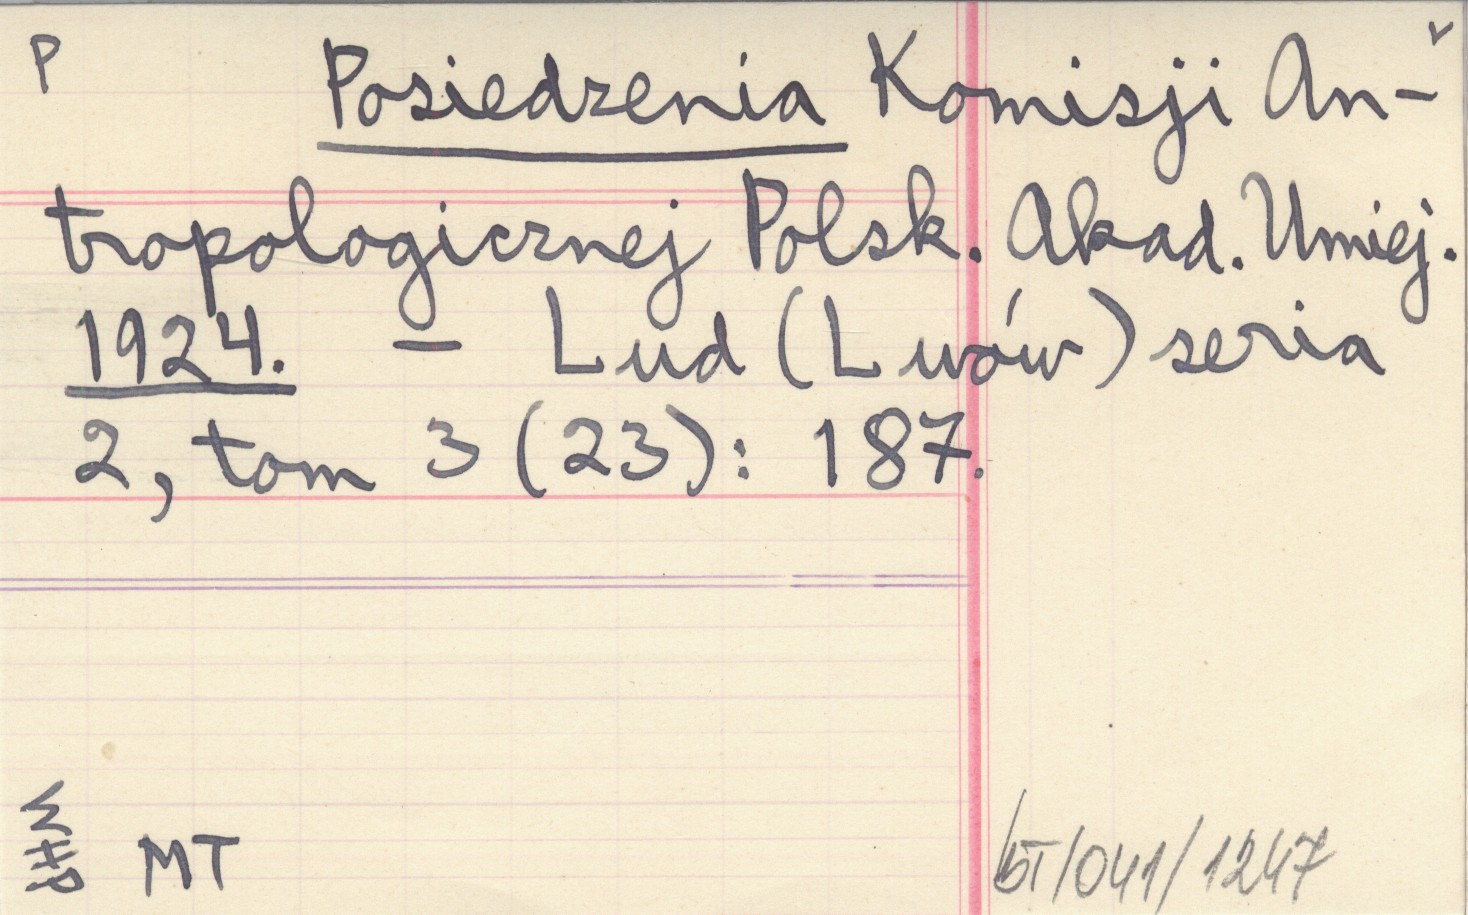 P Posiedzenia Komisji An-
tropologicznej Polsk. Akad. Umiej.
1924. — Lud (Lwów) seria
2, tom 3 (23): 187.
MT
bT/041/1247